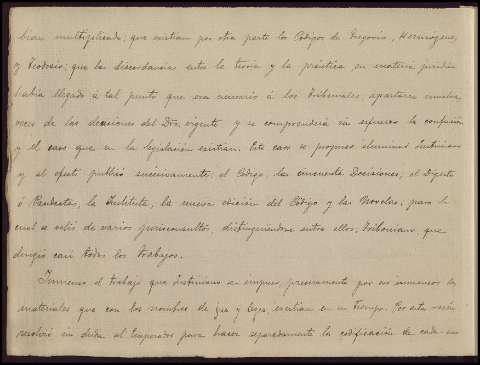 bian multiplicado; que existian por otra parte los Códigos de Gregorio, Hermógenes,
y Teodosio; que la discordancia entre la teoria y la práctica en materia juridica
habia llegado á tal punto que era necesario á los Tribunales, apartarse muchas
veces de las decisiones del Dro. vigente y se comprenderá sin esfuerzo la confusión
y el caos que en la legislación existian. Este caos se propuso eliminar Justiniano
y al efecto publicó sucesivamente; el Código, las cincuenta Decisiones; el Digesto
ó Pandectas, la Instituta, la nueva edición del Código y las Novelas; para lo
cual se valió de varios jurisconsultos, distinguiendose entre ellos, Triboniano, que
dirigió casi todos los trabajos.
Inmenso el trabajo que Justiniano se impuso, precisamente por ser inmensos los
materiales que con los nombres de Jus y Leges, existian en su tiempo. Por esta razón
resolvió sin duda el Emperador para hacer separadamente la codificación de cada uno